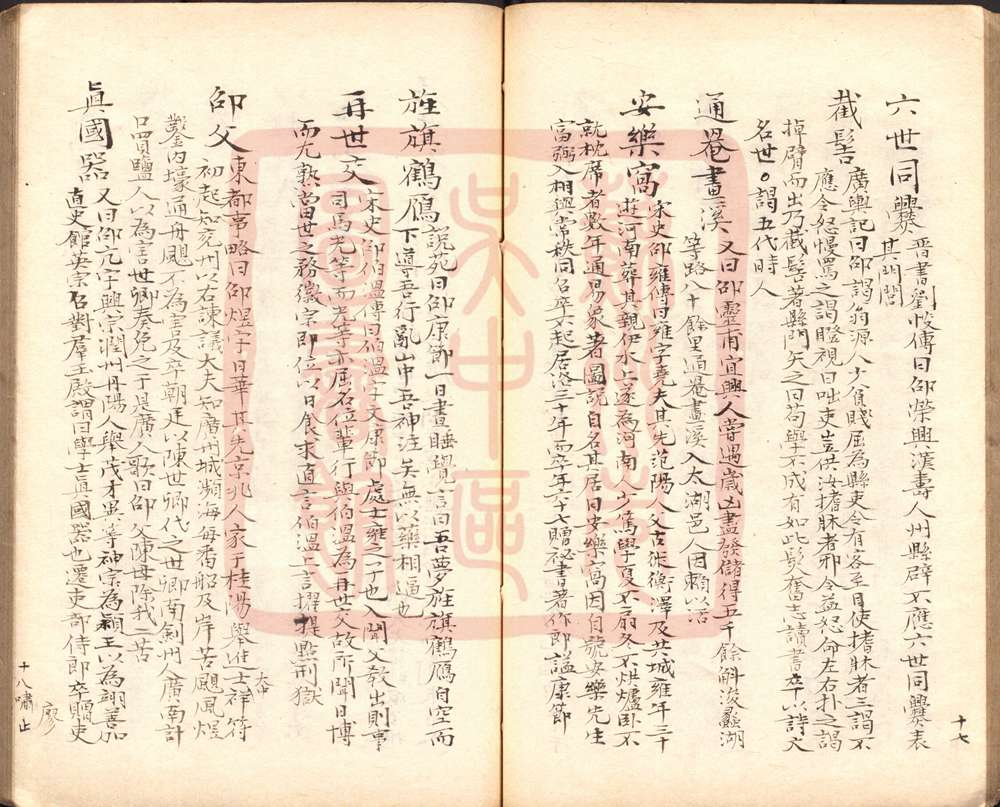 六世同爨 晋書劉恢傳曰邵榮興漢壽人州縣辟不應六世同爨表
其門閭
截髻 廣輿記曰邵謁翁源人少貧賤屈為縣吏令有客至目使搘牀者三謁不
應令怒慢罵之謁瞪視曰咄吏豈供汝搘牀者邪令益怒命左右扑之謁
掉臂而出乃截髻著縣門矢之曰苟學不成有如此髮奮志讀書卒以詩文
名世。謁五代時人
通罨畫溪 又曰邵靈甫宜興人嘗遇歲凶盡發儲得五千餘斛浚蠡湖
等路八十餘里通罨畫溪入太湖邑人因賴以活
安樂窩 宋史邵雍傳曰雍字堯夫其先范陽人父古徙衡漳及共城雍年三十
遊河南葬其親伊水上遂為河南人少篤學夏不扇冬不烘爐卧不
就枕席者數年通易象著圖說自名其居曰安樂窩因自號安樂先生
富弼入相與常秩同召卒不起居洛三十年而卒年六十七贈祕書著作郎謚康節
旌旗鶴鴈 說苑曰邵康節一日晝睡覺言曰吾夢旌旗鶴鴈自空而
下導吾行亂山中吾神注矣無以藥相逼也
再世交 宋史邵伯溫傳曰伯溫字文康節處士雍之子也入聞父教出則事
司馬光等而光等亦屈名位輩行與伯溫為再世交故所聞日博
而尤熟當世之務徽宗即位以日食求直言伯溫上言擢提點刑獄
邵父 東都事略曰邵煜字日華其先京兆人家于桂陽舉進士祥符
初起知兗州以右諫議大夫知廣州城瀕海每番舶及岸苦颶風煜
鑿內壕通舟颶不為害及卒朝廷以陳世卿代之世卿南劍州人廣南計
口買鹽人以為害世卿奏免之于是廣人歌曰邵父陳母除我二苦
眞國器 又曰邵亢字興宗潤州丹陽人舉茂才異等神宗為潁王以為翊善加
直史館英宗召對羣玉殿謂曰學士眞國器也遷吏部侍郎卒贈吏
十七
十八嘯止
廖